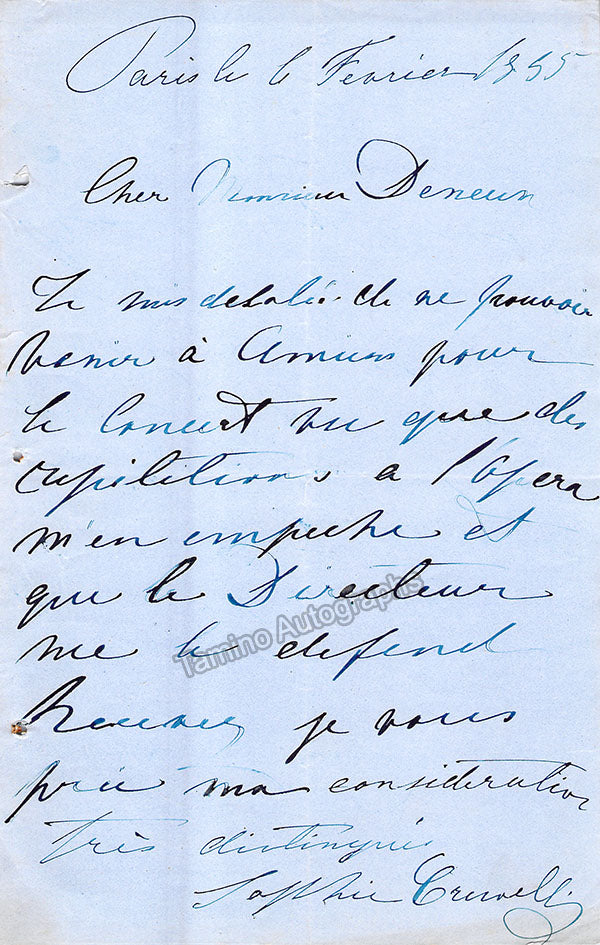 Paris le 6 Fevrier 1855
Cher Monsieur Deneux
Je suis desolée de ne pouvoir
venir à Amiens pour
le Concert vu que des
repétitions a l'Opera
m'en empeche et
que le Directeur
me le defend
Tamino Autographs
Recevez je vous
prie ma consideration
très distinguée
Sophie Cruvelli